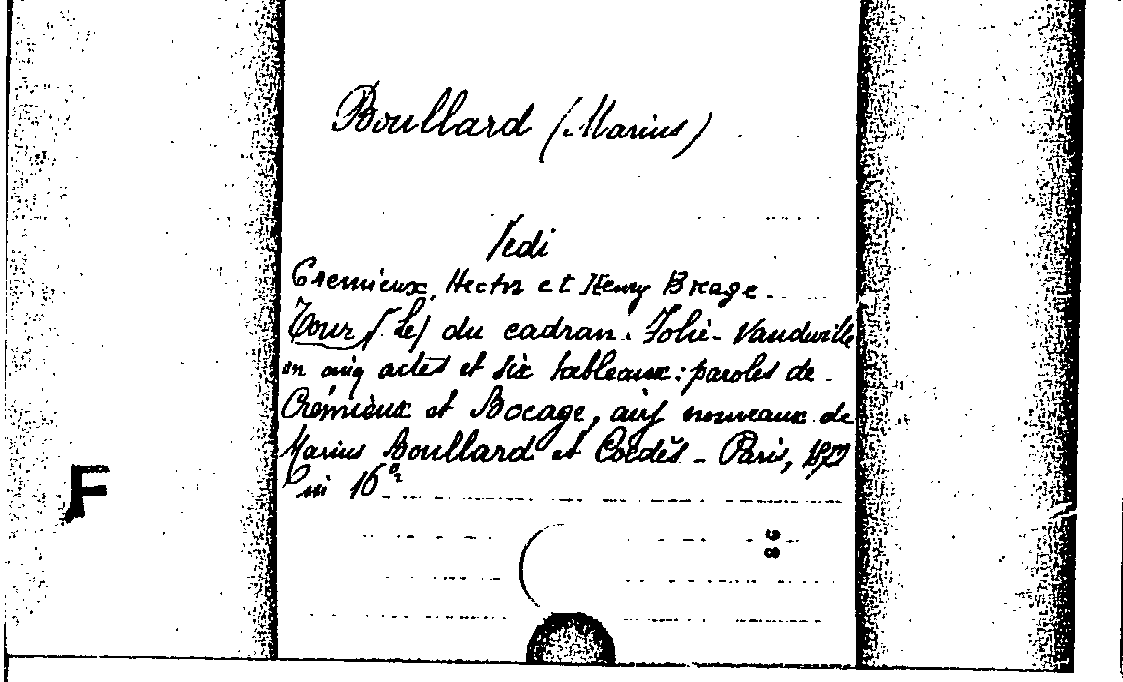 Boullard (Marius)
Vedi
Cremieux, Hector et Henry Bocage.
Tour (Le) du cadran. Folie-Vaudeville
en cinq actes et six tableaux: paroles de
Crémieux et Bocage, airs nouveaux de
Marius Boullard et Coèdès - Paris, 1872
in 16°
F